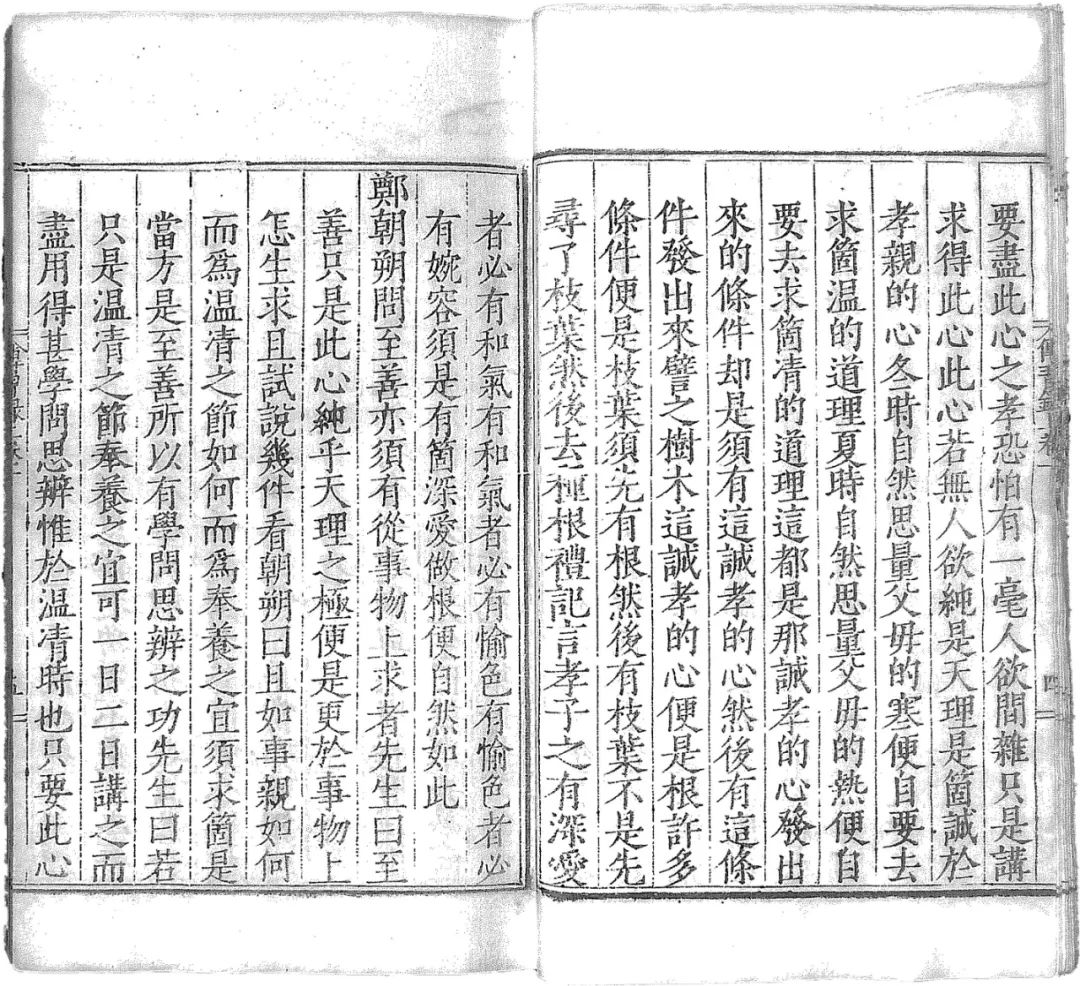 要盡此心之孝恐怕有一毫人欲間雜只是講
求得此心此心若無人欲純是天理是箇誠於
孝親的心冬時自然思量父母的寒便自要去
求箇温的道理夏時自然思量父母的熱便自
要去求箇凊的道理這都是那誠孝的心發出
來的條件却是須有這誠孝的心然後有這條
件發出來譬之樹木這誠孝的心便是根許多
條件便是枝葉須先有根然後有枝葉不是先
尋了枝葉然後去種根禮記言孝子之有深愛
者必有和氣有和氣者必有愉色有愉色者必
有婉容須是有箇深愛做根便自然如此
鄭朝朔問至善亦須有從事物上求者先生曰至
善只是此心純乎天理之極便是更於事物上
怎生求且試說幾件看朝朔曰且如事親如何
而爲温凊之節如何而爲奉養之宜須求箇是
當方是至善所以有學問思辨之功先生曰若
只是温凊之節奉養之宜可一日二日講之而
盡用得甚學問思辨惟於温凊時也只要此心